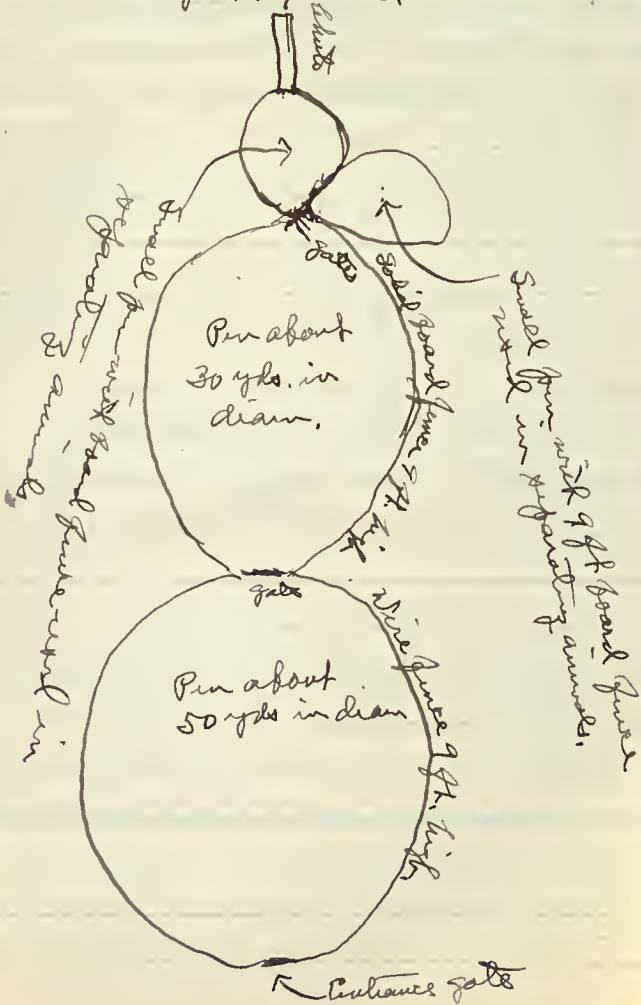 Chute
gates
Small pen with board fence used in
separating animals
solid board fence 9 ft. hi
Small pen with 9 ft board fence
used in separating animals.
Pen about
30 yds. in
diam.
gate
Wire fence 9 ft. high
Pen about
50 yds in diam
Entrance gate